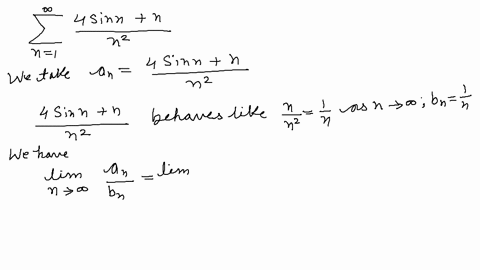 ∞
∑ (4 Sin n + n)/n²
n=1
We take aₙ = (4 Sin n + n)/n²
(4 Sin n + n)/n² behaves like n/n² = 1/n as n → ∞ ; bₙ = 1/n
We have
lim n→∞ aₙ/bₙ = lim